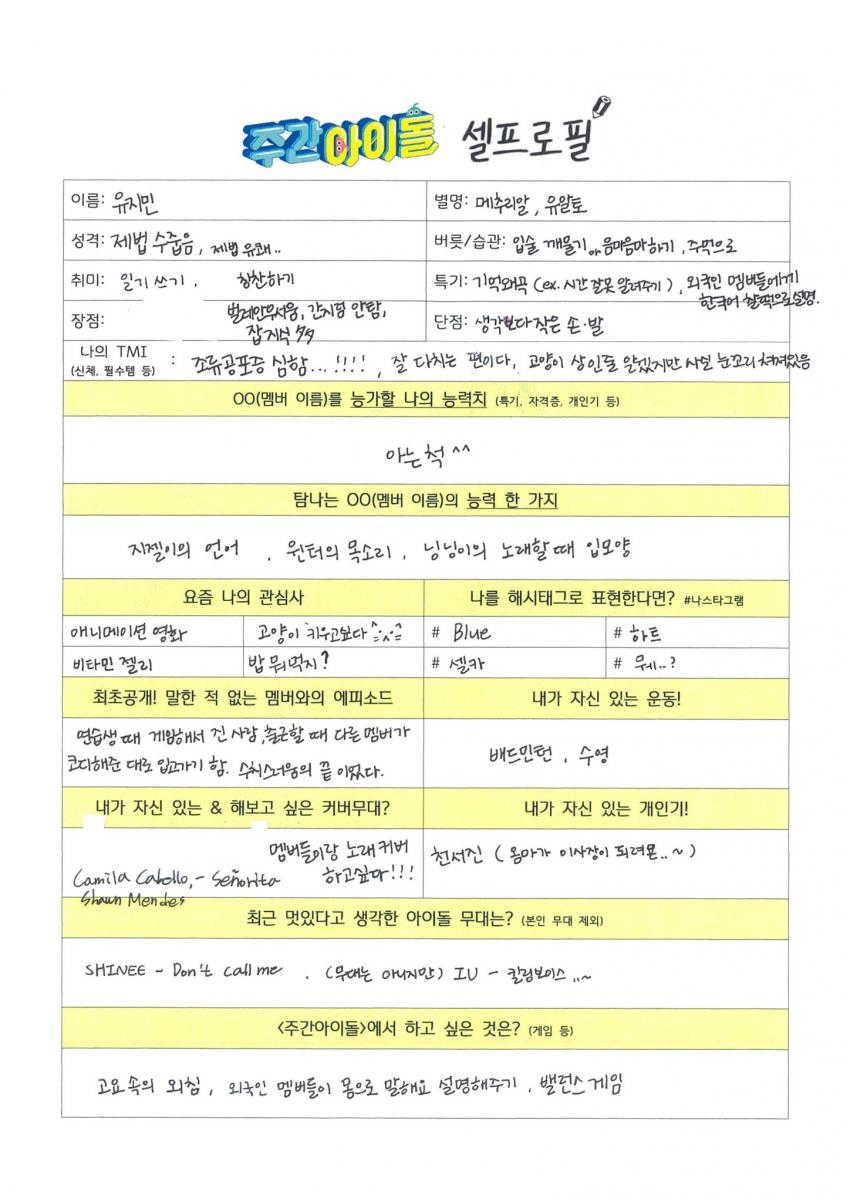 주간아이돌 셀프로필
이름: 유지민
별명: 메추리알, 유알토
성격: 제법 수줍음, 제법 유쾌..
버릇/습관: 입술 깨물기 or 음마음마하기, 주먹으로
취미: 일기 쓰기, 칭찬하기
특기: 기억왜곡 (ex. 시간 잘못 알려주기), 외국인 멤버들에게
한국어 찰떡으로설명.
장점: 벌레안무서움, 간지럼 안탐,
잡지식
단점: 생각보다작은 손·발
나의 TMI
(신체, 필수템 등) : 조류공포증 심함...!!!!, 잘 다치는 편이다, 고양이 상인줄 알겠지만 사실 눈꼬리 쳐져있음
OO(멤버 이름)를 능가할 나의 능력치 (특기, 자격증, 개인기 등)
아는척 ^^
탐나는 OO(멤버 이름)의 능력 한 가지
지젤이의 언어, 윈터의 목소리, 닝닝이의 노래할때 입모양
요즘 나의 관심사
나를 해시태그로 표현한다면? #나스타그램
애니메이션 영화
고양이 키우고싶다
# Blue
# 하트
비타민 젤리
밥 뭐먹지?
# 셀카
# 뭐..?
최초공개! 말한 적 없는 멤버와의 에피소드
내가 자신 있는 운동!
연습생 때 게임해서 진 사람, 출근할 때 다른 멤버가
코디해준 대로 입고가기 함. 수치스러움의 끝 이었다.
배드민턴, 수영
내가 자신 있는 & 해보고 싶은 커버무대?
내가 자신 있는 개인기!
멤버들이랑 노래 커버
하고싶다!!!
Camila Cabello, - Señorita
Shawn Mendes
천서진 (옴마가 이사장이 되려몬..~)
최근 멋있다고 생각한 아이돌 무대는? (본인 무대 제외)
SHINEE - Don't call me, (무대는 아니지만) IU - 킬링보이스 ..~
<주간아이돌>에서 하고 싶은 것은? (게임 등)
고요속의 외침, 외국인 멤버들이 몸으로 말해요 설명해주기, 밸런스게임